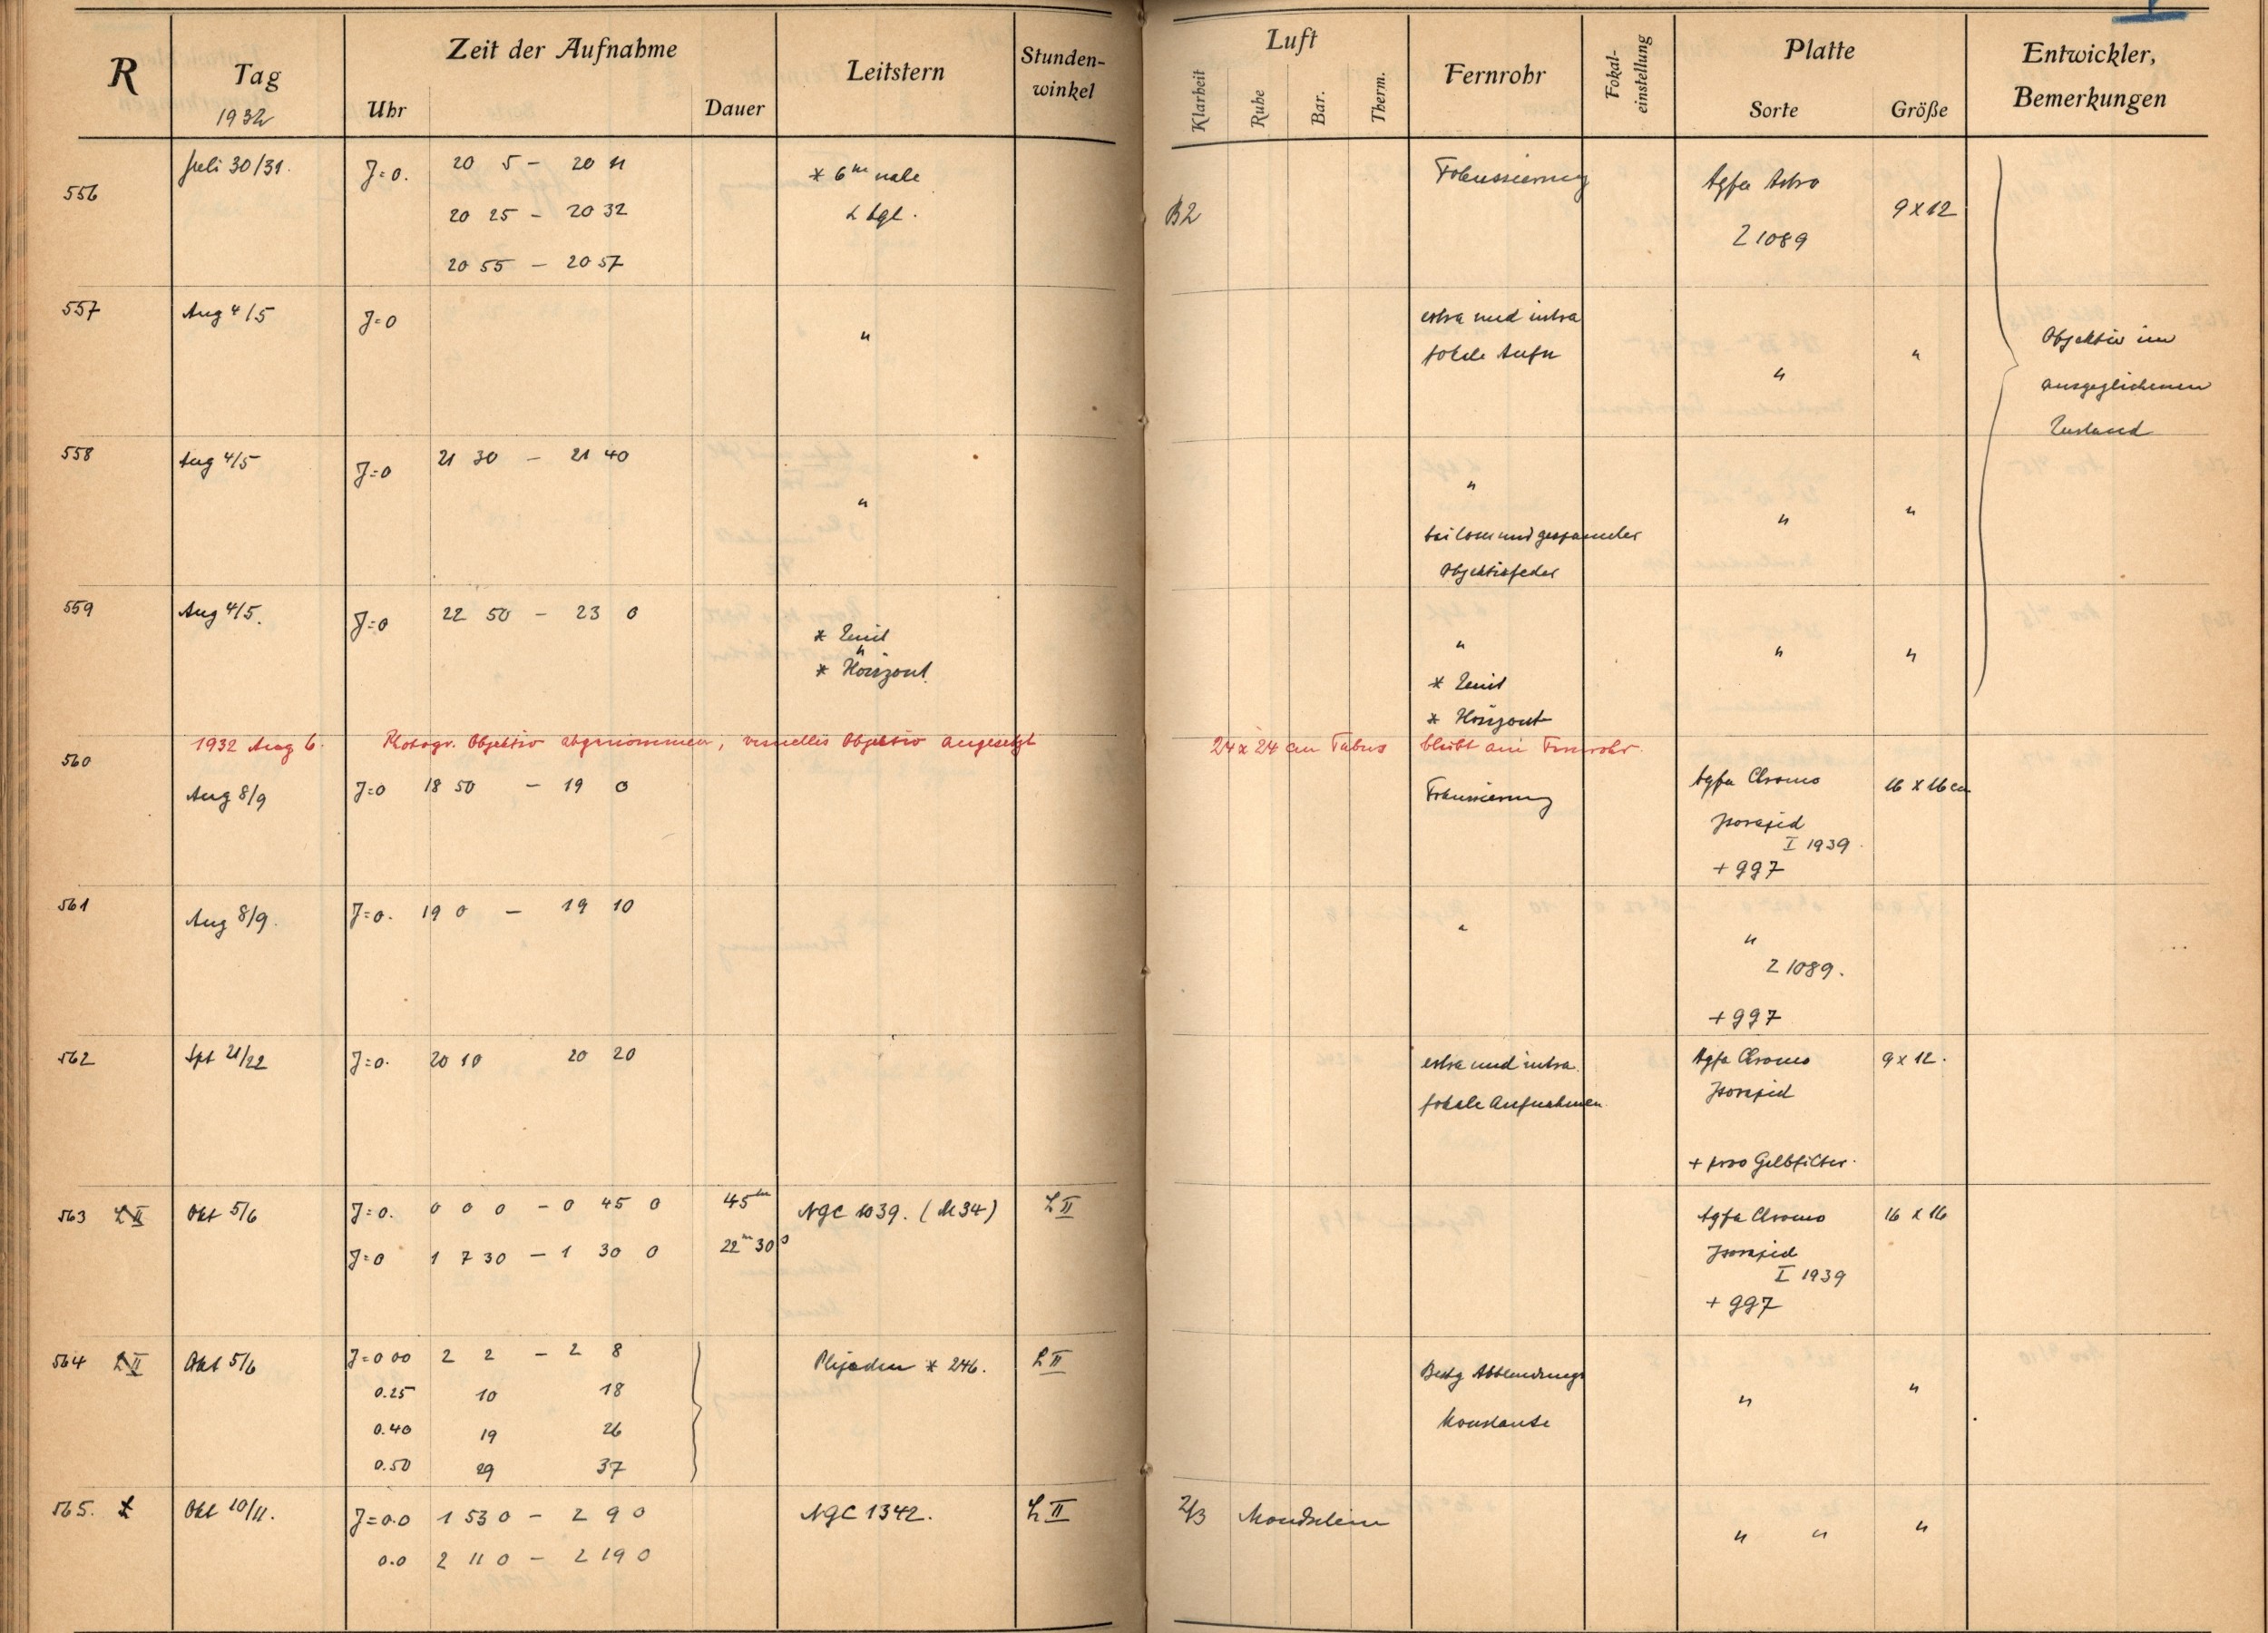 R Tag 1932 Zeit der Aufnahme Uhr Dauer Leitstern Stunden-winkel Luft Klarheit Ruhe Bar. Therm. Fernrohr Fokal-einstellung Platte Sorte Größe Entwickler, Bemerkungen
556 Juli 30/31. J=0. 20 5 - 20 11 * 6m nahe B2 Fokussierung Agfa Astro 9 x 12
20 25 - 20 32 Z 1089
20 55 - 20 57
557 Aug 4/5 J=0 " extra und intra " " Objektiv im
fokale Aufn ausgeglichenen
Zustand
558 Aug 4/5 J=0 21 30 - 21 40 " " " "
bei loser und gespannter
Objektivfeder
559 Aug 4/5. J=0 22 50 - 23 0 * Zenit " " "
" * Zenit
* Horizont. * Horizont
560 1932 Aug 6. Photogr. Objektiv abgenommen, visuelles Objektiv angesetzt 24 x 24 cm Tubus bleibt am Fernrohr.
Aug 8/9 J=0 18 50 - 19 0 Fokussierung Agfa Chromo 16 x 16 cm
Isorapid
I 1939.
+ 997
561 Aug 8/9. J=0. 19 0 - 19 10 " "
Z 1089.
+ 997
562 Spt 21/22 J=0. 20 10 20 20 extra und intra. Agfa Chromo 9 x 12.
fokale Aufnahmen. Isorapid
+ Gelbfilter.
563 L II Okt 5/6 J=0. 0 0 0 - 0 45 0 45m NGC 1039. (M34) L II Agfa Chromo 16 x 16
J=0 1 7 30 - 1 30 0 22m 30s Isorapid
I 1939
+ 997
564 L II Okt 5/6 J=0 00 2 2 - 2 8 Plejaden * 246. L II Bestg Abblendungs " "
0.25 10 18 Konstante
0.40 19 26
0.50 29 37
565. L Okt 10/11. J=0.0 1 53 0 - 2 9 0 NGC 1342. L II 2/3 Mondschein " " "
0.0 2 11 0 - 2 19 0